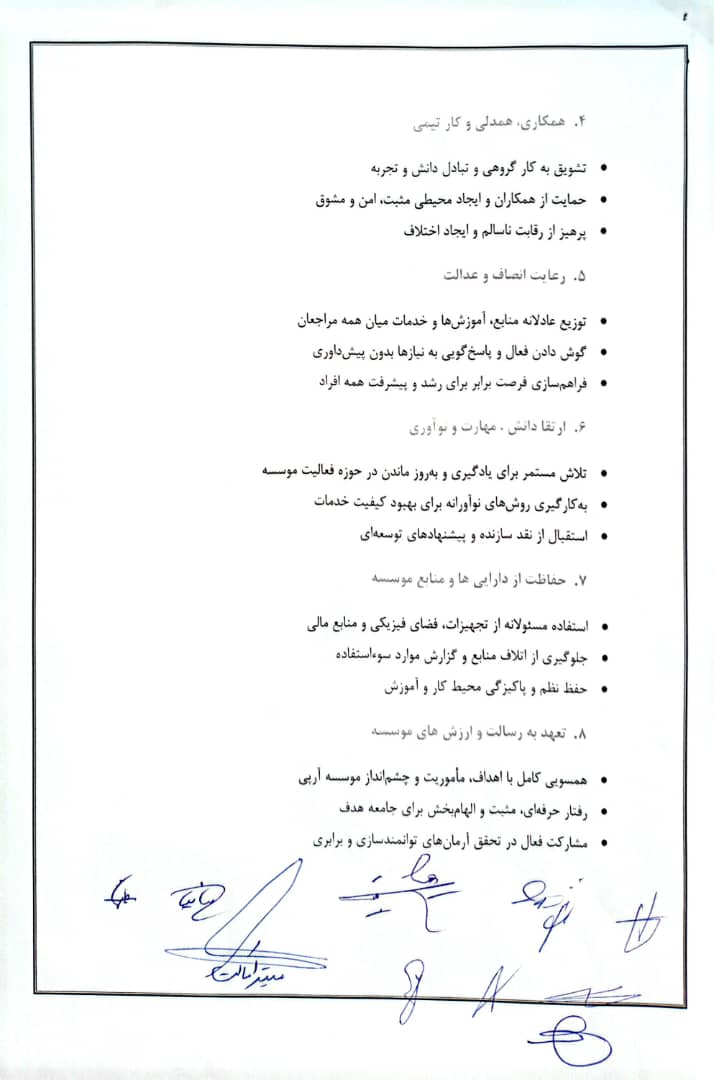 ۴. همکاری، همدلی و کار تیمی
• تشویق به کار گروهی و تبادل دانش و تجربه
• حمایت از همکاران و ایجاد محیطی مثبت، امن و مشوق
• پرهیز از رقابت ناسالم و ایجاد اختلاف
۵. رعایت انصاف و عدالت
• توزیع عادلانه منابع، آموزش‌ها و خدمات میان همه مراجعان
• گوش دادن فعال و پاسخ‌گویی به نیازها بدون پیش‌داوری
• فراهم‌سازی فرصت برابر برای رشد و پیشرفت همه افراد
۶. ارتقا دانش ، مهارت و نوآوری
• تلاش مستمر برای یادگیری و به‌روز ماندن در حوزه فعالیت موسسه
• به‌کارگیری روش‌های نوآورانه برای بهبود کیفیت خدمات
• استقبال از نقد سازنده و پیشنهادهای توسعه‌ای
۷. حفاظت از دارایی ها و منابع موسسه
• استفاده مسئولانه از تجهیزات، فضای فیزیکی و منابع مالی
• جلوگیری از اتلاف منابع و گزارش موارد سوءاستفاده
• حفظ نظم و پاکیزگی محیط کار و آموزش
۸. تعهد به رسالت و ارزش های موسسه
• همسویی کامل با اهداف، مأموریت و چشم‌انداز موسسه آرپی
• رفتار حرفه‌ای، مثبت و الهام‌بخش برای جامعه هدف
• مشارکت فعال در تحقق آرمان‌های توانمندسازی و برابری